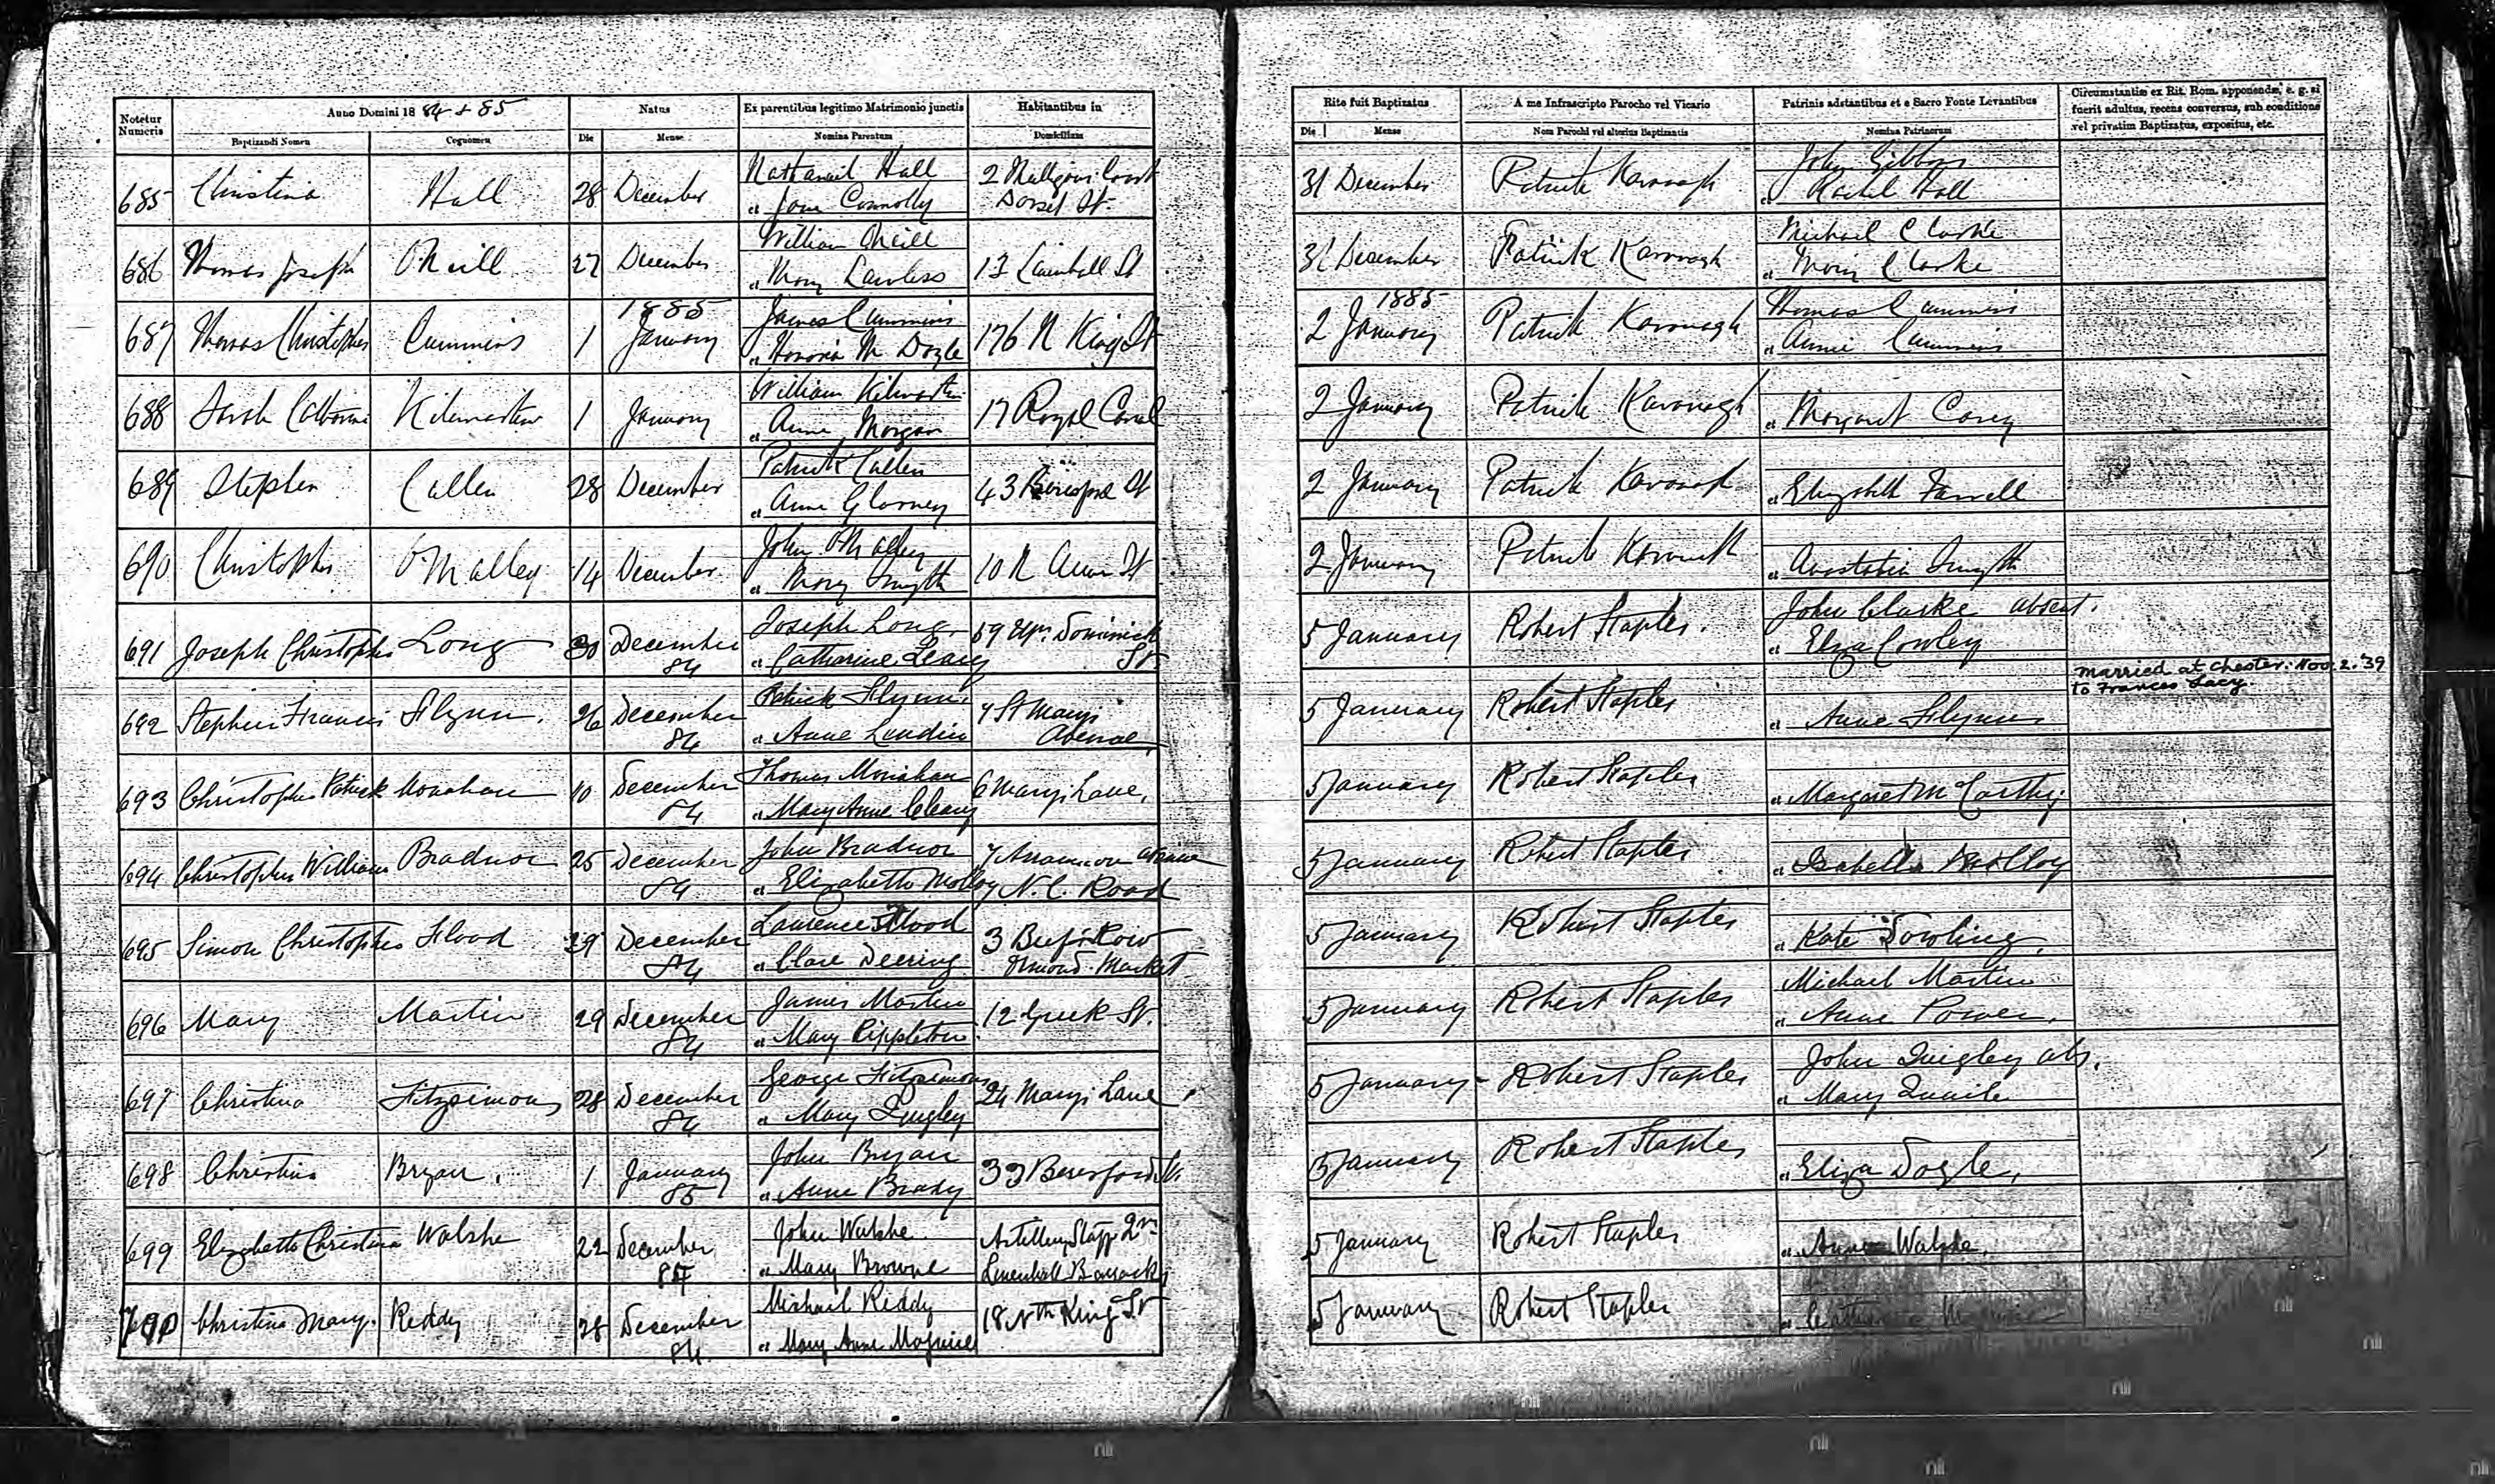 Notetur Numeris
Anno Domini 1884 + 85
Baptizandi Nomen
Cognomen
Natus
Die
Mense
Ex parentibus legitimo Matrimonio junctis
Nomina Parentum
Habitantibus in
Domicilium
Rite fuit Baptizatus
Die
Mense
A me Infrascripto Parocho vel Vicario
Nom Parochi vel alterius Baptizantis
Patrinis adstantibus et e Sacro Fonte Levantibus
Nomina Patrinorum
Circumstantiæ ex Rit. Rom. apponendæ, e. g. si
fuerit adultus, recens conversus, sub conditione
vel privatim Baptizatus, expositus, etc.
685 Christina Hall 28 December Nathaniel Hall
et Jane Connolly
2 Court
Dorset St.
31 December Patrick Kavanagh John Gibbons
et Rachel Hall
686 Thomas Joseph ONeill 27 December William ONeill
et Mary Lawless
13 Linenhall St
31 December Patrick Kavanagh Michael Clarke
et Mary Clarke
687 Thomas Christopher Cummins 1 1885 January James Cummins
et Honoria M Doyle
176 N King St
2 1885 January Patrick Kavanagh Thomas Cummins
et Annie Cummins
688 Sarah Catherine Kilmartin 1 January William Kilmartin
et Anne Morgan
17 Royal Canal
2 January Patrick Kavanagh
et Margaret Carey
689 Stephen Callen 28 December Patrick Callen
et Anne Glorney
43 Beresford St
2 January Patrick Kavanagh
et Elizabeth Farrell
690 Christopher OMalley 14 December John OMalley
et Mary Smyth
10 N Anne St
2 January Patrick Kavanagh
et Anastatia Smyth
691 Joseph Christopher Long 30 December 84 Joseph Long
et Catharine Leary
59 Upr. Dominick
St
5 January Robert Staples. John Clarke absent.
et Eliza Cowley
692 Stephen Francis Flynn. 26 December 84 Patrick Flynn
et Anne Landin
7 St Mary's
Avenue,
5 January Robert Staples
et Anne Flynn
married at Chester. Nov. 2. '39
to Frances Lacy.
693 Christopher Patrick Monahan 10 December 84 Thomas Monahan
et Mary Anne Cleary
6 Mary's Lane,
5 January Robert Staples
et Margaret McCarthy.
694 Christopher William Bradnor 25 December 84 John Bradnor
et Elizabeth Molloy
7 Avenue
N. C. Road
5 January Robert Staples
et Isabella Molloy
695 Simon Christopher Flood 29 December 84 Laurence Flood
et Clare Deering
3 Beef Row
Ormond Market
5 January Robert Staples
et Kate Dowling.
696 Mary Martin 29 December 84 James Martin
et Mary Rippleton
12 Greek St.
5 January Robert Staples Michael Martin
et Anne Power.
697 Christina Fitzsimons 28 December 84 George Fitzsimons
et Mary Quigley
24 Mary's Lane
5 January Robert Staples John Quigley abs.
et Mary Quaile
698 Christina Bryan. 1 January 85 John Bryan
et Anne Brady
33 Beresford St.
5 January Robert Staples
et Eliza Doyle,
699 Elizabeth Christina Walshe 22 December 84 John Walshe
et Mary Browne
Artillery Staff
Linenhall Barracks
5 January Robert Staples
et Anne Walshe.
700 Christina Mary. Reddy 28 December 84 Michael Reddy
et Mary Anne Maguire
18 Nth King St
5 January Robert Staples
et Catherine
nli
nli
nli
nli
nli
nli
nli
nli
nli